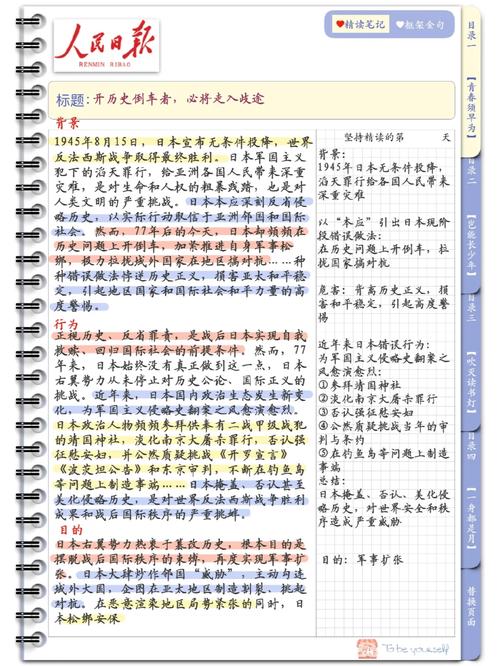 精读笔记
框架金句
人民日报
RENMIN RIBAO
标题：开历史倒车者，必将走入歧途
背景
1945年8月15日，日本宣布无条件投降，世界
反法西斯战争取得最终胜利。日本军国主义
犯下的滔天罪行，给亚洲各国人民带来深重
灾难，是对生命和人权的粗暴践踏，也是对
人类文明的严重挑战。日本本应深刻反省侵
略历史，以实际行动取信于亚洲邻国和国际
社会。然而，77年后的今天，日本却频频在
历史问题上开倒车，加紧推进自身军事松
绑，极力拉拢域外国家在地区搞对抗……种
种错误做法将背历史正义，损害亚太和平稳
定，引起地区国家和国际社会和平力量的高
度警惕。
行为
正视历史、反省罪责，是战后日本实现自我
救赎、回归国际社会的前提条件。然而，77
年来，日本始终没有真正做到这一点，日本
右翼势力从未停止对历史公论、国际正义的
挑战。近年来，日本国内政治生态发生新变
化，为军国主义侵略史翻案之风愈演愈烈。
日本政治人物频频参拜供奉有二战甲级战犯
的靖国神社，淡化南京大屠杀罪行，否认强
征慰安妇，并公然质疑挑战《开罗宣言》
《波茨坦公告》和东京审判，不断在钓鱼岛
等问题上制造事端……日本掩盖、否认甚至
美化侵略历史，是对世界反法西斯战争胜利
成果和战后国际秩序的严重挑衅。
目的
日本右翼势力热衷于篡改历史，根本目的是
摆脱战后国际秩序的束缚，再度实现军事扩
张。日本大肆炒作邻国“威胁”，主动勾连
域外大国，企图在亚太地区制造割裂、挑起
对抗。在恶意渲染地区局势紧张的同时，日
本松绑安保
坚持精读的第 天
背景：
1945年日本无条件投降，
滔天罪行给各国人民带来
深重灾难
以“本应”引出日本现阶
段错误做法：
在历史问题上开倒车，拉
拢国家搞对抗
危害：背离历史正义，损
害和平稳定，引起高度警
惕
近年来日本错误行为：
为军国主义侵略史翻案之
风愈演愈烈：
①参拜靖国神社
②淡化南京大屠杀罪行
③否认强征慰安妇
④公然质疑挑战当年的审
判与条约
⑤在钓鱼岛等问题上制造
事端
总结：
日本掩盖、否认、美化侵
略历史，对世界安全和秩
序造成严重威胁
目的：军事扩张
To be yourself
目录一
【青春须早为】
目录二
【岂能长少年】
目录三
【吹灭读书灯】
目录四
【一身都是月】
替换页面